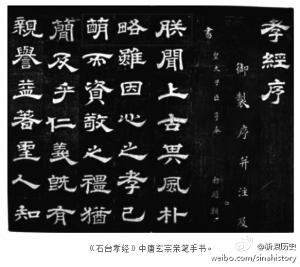 孝經序
御製序并注及
書
皇太子臣亨奉 勑題額
朕聞上古其風朴
略雖因心之孝已
萌而資敬之禮猶
簡及乎仁義既有
親譽益著聖人知
《石台孝经》中唐玄宗亲笔手书。
@新浪历史
weibo.com/sinahistory